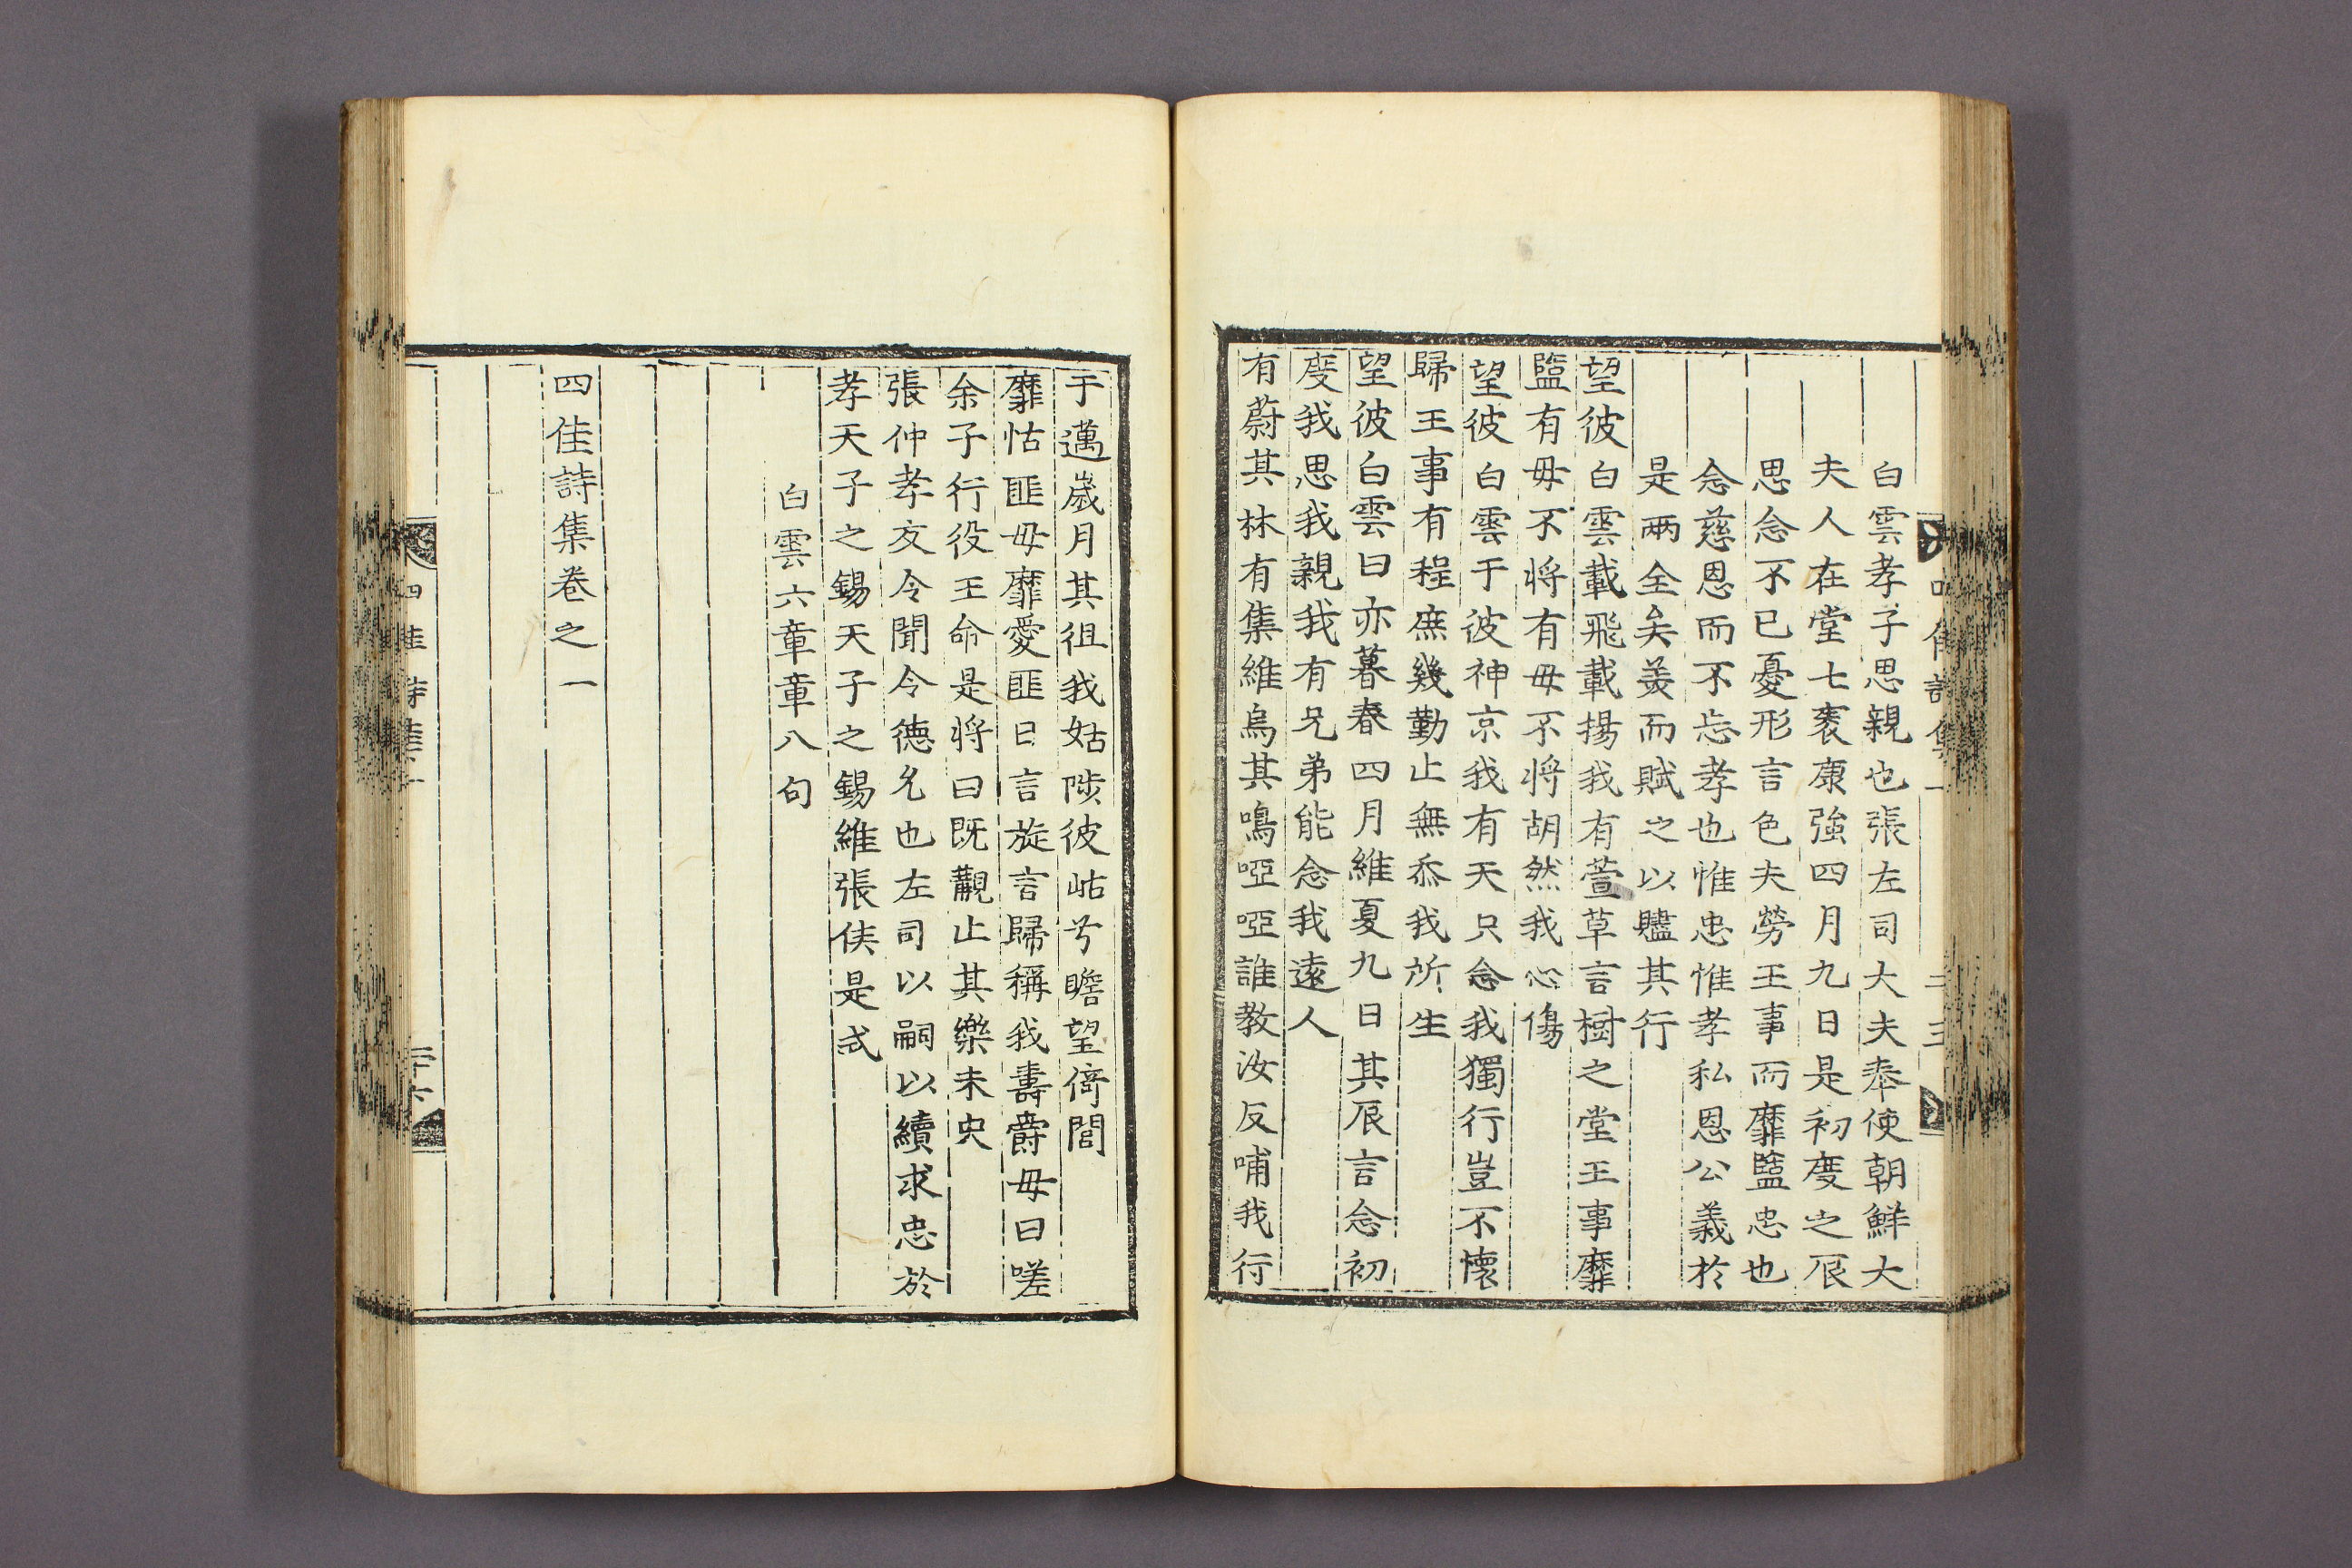 白雲孝子思親也張左司大夫奉使朝鮮大
夫人在堂七袠康強四月九日是初度之辰
思念不已憂形言色夫勞王事而靡盬忠也
念慈恩而不忘孝也惟忠惟孝私恩公義於
是兩全矣羙而賦之以贐其行
望彼白雲載飛載揚我有萱草言樹之堂王事靡
盬有母不將有母不將胡然我心傷
望彼白雲于彼神京我有天只念我獨行豈不懷
歸王事有程庶幾勤止無忝我所生
望彼白雲曰亦暮春四月維夏九日其辰言念初
度我思我親我有兄弟能念我遠人
有蔚其林有集維烏其鳴啞啞誰教汝反哺我行
于邁歲月其徂我姑陟彼岵兮瞻望倚閭
靡怙匪母靡愛匪日言旋言歸稱我壽爵母曰嗟
余子行役王命是將曰既覯止其樂未央
張仲孝友令聞令德允也左司以嗣以續求忠於
孝天子之錫天子之錫維張侯是式
白雲六章章八句
四佳詩集卷之一
四佳詩集一